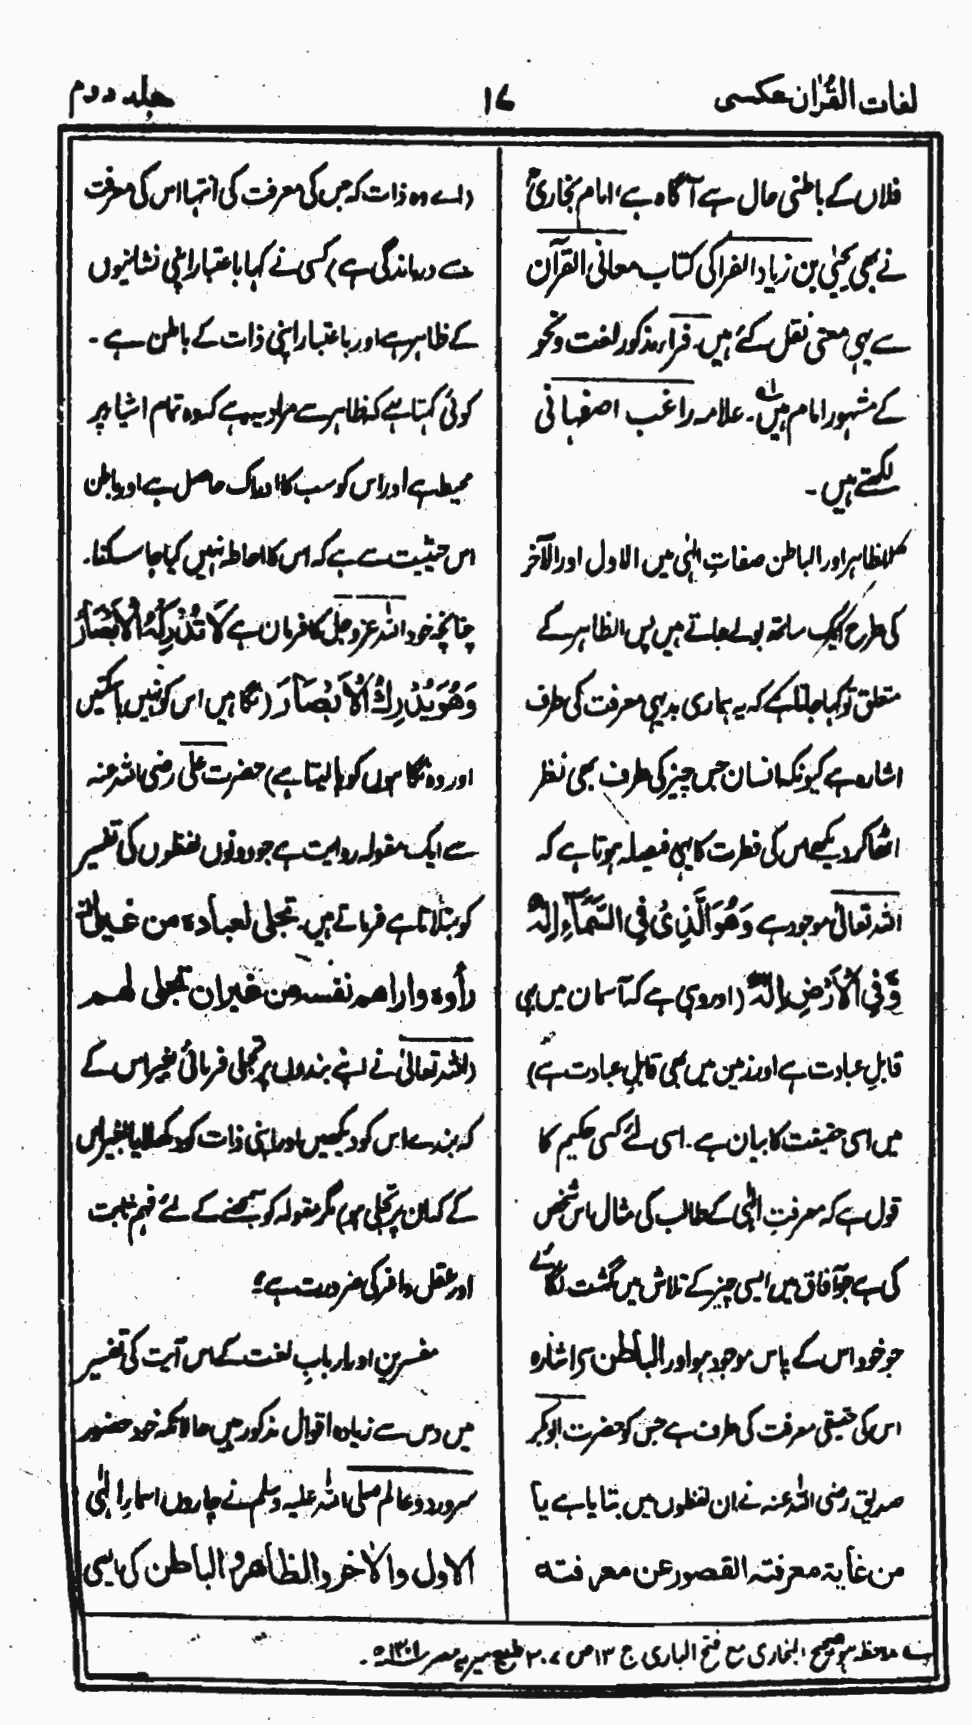 لغات القرآن عکسی
۱۷
جلد دوم
فلاں کے باطنی حال سے آگاہ ہے، امام بخاریؒ
نے بھی یحییٰ بن زیاد الفرا کی کتاب معانی القرآن
سے یہی معنی نقل کئے ہیں۔ فراء مذکور لغت ونحو
کے مشہور امام ہیں لہ۔ علامہ راغب اصفہانی
لکھتے ہیں۔
الظاہر اور الباطن صفاتِ الٰہی میں الاول اور الآخر
کی طرح ایک ساتھ بولے جاتے ہیں پس الظاہر کے
متعلق تو کہا جاتا ہے کہ یہ ہماری بدیہی معرفت کی طرف
اشارہ ہے کیونکہ انسان جس چیز کی طرف بھی نظر
اٹھا کر دیکھے اس کی فطرت کا یہی فیصلہ ہوتا ہے کہ
اللہ تعالیٰ موجود ہے وَهُوَ الَّذِیْ فِی السَّمَآءِ اِلٰهٌ
وَّفِی الْاَرْضِ اِلٰهٌ (اور وہی ہے کہ آسمان میں بھی
قابلِ عبادت ہے اور زمین میں بھی قابلِ عبادت ہے)
میں اسی حقیقت کا بیان ہے۔ اسی لئے کسی حکیم کا
قول ہے کہ معرفتِ الٰہی کے طالب کی مثال اس شخص
کی ہے جو آفاق میں ایسی چیز کے تلاش میں گشت لگائے
جو خود اس کے پاس موجود ہو اور الباطن سے اشارہ
اس کی حقیقی معرفت کی طرف ہے جس کو حضرت ابوبکر
صدیق رضی اللہ عنہ نے ان لفظوں میں بتایا ہے یا
من غایة معرفته القصور عن معرفته
(اے وہ ذات کہ جس کی معرفت کی انتہا اس کی معرفت
سے درماندگی ہے) کسی نے کہا باعتبار اپنی نشانیوں
کے ظاہر ہے اور باعتبار اپنی ذات کے باطن ہے۔
کوئی کہتا ہے کہ ظاہر سے مراد یہ ہے کہ وہ تمام اشیاء پر
محیط ہے اور اس کو سب کا ادراک حاصل ہے اور باطن
اس حیثیت سے ہے کہ اس کا احاطہ نہیں کیا جا سکتا۔
چنانچہ خود اللہ عزوجل کا فرمان ہے لَا تُدْرِکُهُ الْاَبْصَارُ
وَهُوَ یُدْرِكُ الْاَبْصَارَ (نگاہیں اس کو نہیں پا سکتیں
اور وہ نگاہوں کو پا لیتا ہے) حضرت علی رضی اللہ عنہ
سے ایک مقولہ روایت ہے جو دونوں لفظوں کی تفسیر
کو بتلاتا ہے فرماتے ہیں۔ تجلی لعباده من غیر ان
رأوه واراهم نفسه من غیر ان تجلی لهم
(اللہ تعالیٰ نے اپنے بندوں پر تجلی فرمائی بغیر اس کے
کہ بندے اس کو دیکھیں اور اپنی ذات کو دکھلایا بغیر اس
کے کہ ان پر تجلی ہو) مگر مقولہ کو سمجھنے کے لئے فہم ثابت
اور عقل وافر کی ضرورت ہے۔
مفسرین اور اربابِ لغت کے اس آیت کی تفسیر
میں دس سے زیادہ اقوال مذکور ہیں حالانکہ خود حضور
سرورِ دو عالم صلی اللہ علیہ وسلم نے چاروں اسماءِ الٰہی
الاول والآخر والظاهر والباطن کی ایسی
لہ ملاحظہ ہو صحیح البخاری مع فتح الباری ج ۱۳ ص ۳۰۷ طبع میریہ مصر ۱۳۰۱ھ۔